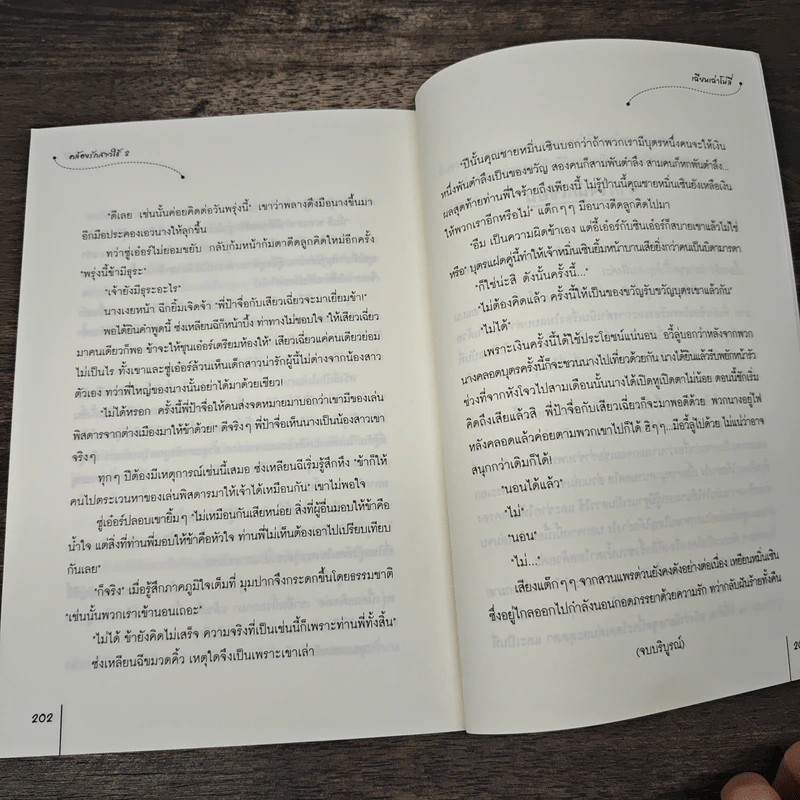 คล้องรักสตรีใช้ 2
"ดีเลย เช่นนั้นค่อยคิดต่อวันพรุ่งนี้" เขาว่าพลางดึงมือนางขึ้นมา
อีกมือประคองเอวนางให้ลุกขึ้น
ทว่าซู่เอ๋อร์ไม่ยอมขยับ กลับก้มหน้าก้มตาดีดลูกคิดใหม่อีกครั้ง
"พรุ่งนี้ข้ามีธุระ"
"เจ้ายังมีธุระอะไร"
นางเงยหน้า ฉีกยิ้มเจิดจ้า "พี่ป้าจื่อกับเสียวเฉี่ยวจะมาเยี่ยมข้า!"
พอได้ยินคำพูดนี้ ซ่งเหลียนฉีก็หน้าบึ้ง ท่าทางไม่ชอบใจ "ให้เสียวเฉี่ยว
มาคนเดียวก็พอ ข้าจะให้ชุนเอ๋อร์เตรียมห้องให้" เสียวเฉี่ยวแค่คนเดียวย่อม
ไม่เป็นไร ทั้งเขาและซู่เอ๋อร์ล้วนเห็นเด็กสาวน่ารักผู้นี้ไม่ต่างจากน้องสาว
ตัวเอง ทว่าพี่ใหญ่ของนางนั้นอย่าได้มาด้วยเชียว!
"ไม่ได้หรอก ครั้งนี้พี่ป้าจื่อให้คนส่งจดหมายมาบอกว่าเขามีของเล่น
พิสดารจากต่างเมืองมาให้ข้าด้วย!" ดีจริงๆ พี่ป้าจื่อเห็นนางเป็นน้องสาวเขา
จริงๆ
ทุกๆ ปีต้องมีเหตุการณ์เช่นนี้เสมอ ซ่งเหลียนฉีเริ่มรู้สึกหึง "ข้าก็ให้
คนไปตระเวนหาของเล่นพิสดารมาให้เจ้าได้เหมือนกัน" เขาไม่พอใจ
ซู่เอ๋อร์ปลอบเขายิ้มๆ "ไม่เหมือนกันเสียหน่อย สิ่งที่ผู้อื่นมอบให้ข้าคือ
น้ำใจ แต่สิ่งที่ท่านพี่มอบให้ข้าคือหัวใจ ท่านพี่ไม่เห็นต้องเอาไปเปรียบเทียบ
กันเลย"
"ก็จริง" เมื่อรู้สึกภาคภูมิใจเต็มที่ มุมปากจึงกระดกขึ้นโดยธรรมชาติ
"เช่นนั้นพวกเราเข้านอนเถอะ"
"ไม่ได้ ข้ายังคิดไม่เสร็จ ความจริงที่เป็นเช่นนี้ก็เพราะท่านพี่ทั้งสิ้น"
ซ่งเหลียนฉีขมวดคิ้ว เหตุใดจึงเป็นเพราะเขาเล่า
202
เฉียนเฉ่าโม่ลี่
"ปีนั้นคุณชายหมิ่นเซินบอกว่าถ้าพวกเรามีบุตรหนึ่งคนจะให้เงิน
หนึ่งพันตำลึงเป็นของขวัญ สองคนก็สามพันตำลึง สามคนก็หกพันตำลึง...
ผลสุดท้ายท่านพี่ใจร้ายถึงเพียงนี้ ไม่รู้ป่านนี้คุณชายหมิ่นเซินยังเหลือเงิน
ให้พวกเราอีกหรือไม่" แต๊กๆๆ มือนางดีดลูกคิดไปมา
"อืม เป็นความผิดข้าเอง แต่อี้เอ๋อร์กับซินเอ๋อร์ก็สบายเขาแล้วไม่ใช่
หรือ" บุตรแฝดคู่นี้ทำให้เจ้าหมิ่นเซินยิ้มหน้าบานเสียยิ่งกว่าคนเป็นบิดามารดา
"ก็ใช่น่ะสิ ดังนั้นครั้งนี้..."
"ไม่ต้องคิดแล้ว ครั้งนี้ให้เป็นของขวัญรับขวัญบุตรเขาแล้วกัน"
"ไม่ได้"
เพราะเงินครั้งนี้ได้ใช้ประโยชน์แน่นอน อวี้ลู่บอกว่าหลังจากพวก
นางคลอดบุตรครั้งนี้ก็จะชวนนางไปเที่ยวด้วยกัน นางได้ยินแล้วรีบพยักหน้ารัว
ช่วงที่จากหังโจวไปสามเดือนนั้นนางได้เปิดหูเปิดตาไม่น้อย ตอนนี้ชักเริ่ม
คิดถึงเสียแล้วสิ พี่ป้าจื่อกับเสียวเฉี่ยวก็จะมาพอดีด้วย พวกนางอยู่ไฟ
หลังคลอดแล้วค่อยตามพวกเขาไปก็ได้ ฮิๆๆ...มีอวี้ลู่ไปด้วย ไม่แน่ว่าอาจ
สนุกกว่าเดิมก็ได้!
"นอนได้แล้ว"
"ไม่"
"นอน"
"ไม่..."
เสียงแต๊กๆๆ จากสวนแพรต่วนยังคงดังอย่างต่อเนื่อง เหยียนหมิ่นเซิน
ซึ่งอยู่ไกลออกไปกำลังนอนกอดภรรยาด้วยความรัก ทว่ากลับฝันร้ายทั้งคืน
(จบบริบูรณ์)